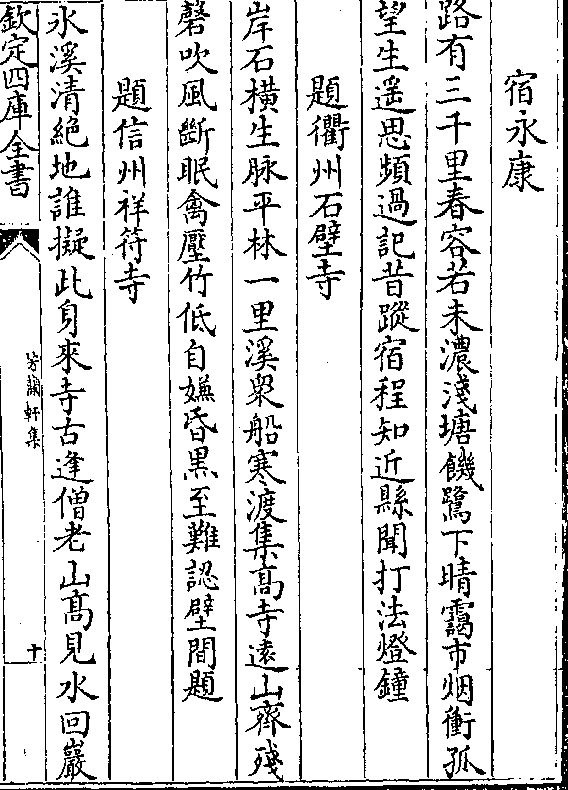 宿永康
路有三千里春容若未濃淺塘饑鷺下晴靄市烟衝孤
望生遥思頻過記昔蹤宿程知近縣聞打法燈鐘
題衢州石壁寺
岸石橫生脉平林一里溪衆船寒渡集髙寺逺山齊殘
磬吹風斷眠禽壓竹低自嫌昏黒至難認壁間題
題信州祥符寺
氷溪清絶地誰擬此身來寺古逢僧老山髙見水回巖
欽定四庫全書
芳蘭軒集
十